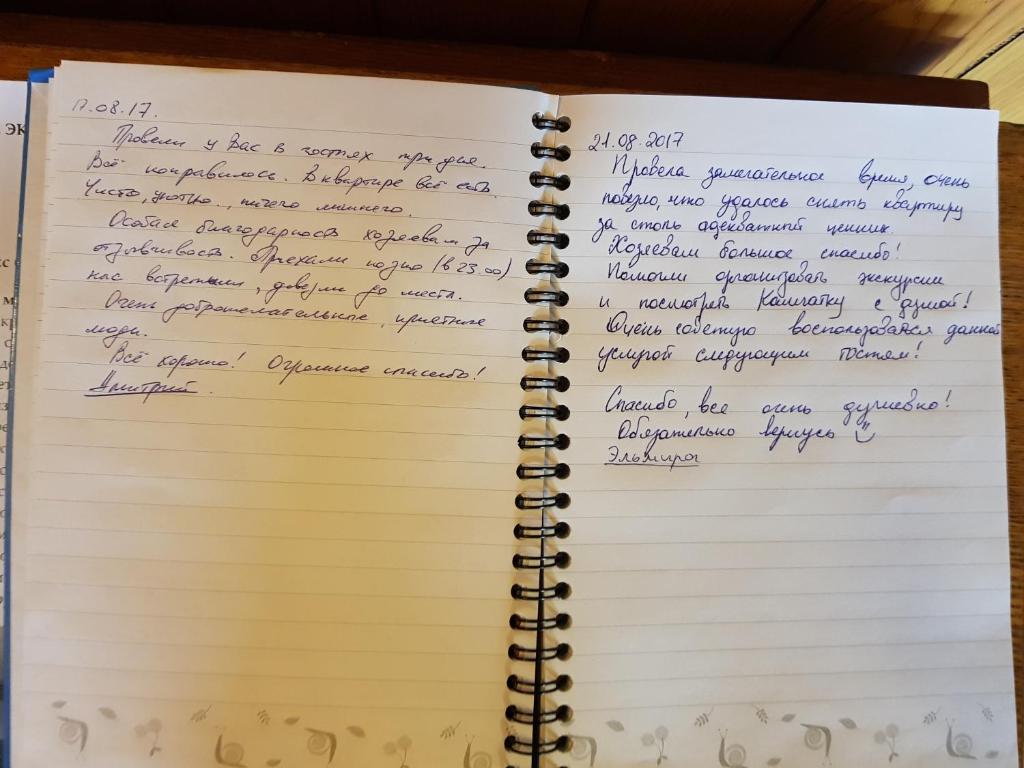 17.08.17.
Провели у Вас в гостях три дня.
Всё понравилось. В квартире всё есть.
Чисто, уютно, ничего лишнего.
Особая благодарность хозяевам за
отзывчивость. Приехали поздно (в 23.00)
нас встретили, довезли до места.
Очень доброжелательные, приятные
люди.
Всё хорошо! Огромное спасибо!
Дмитрий.
21.08.2017
Провела замечательное время, очень
повезло, что удалось снять квартиру
за столь адекватный ценник.
Хозяевам большое спасибо!
Помогли организовать экскурсии
и посмотреть Камчатку с душой!
Очень советую воспользоваться данной
услугой следующим гостям!
Спасибо, все очень душевно!
Обязательно вернусь
Эльмира